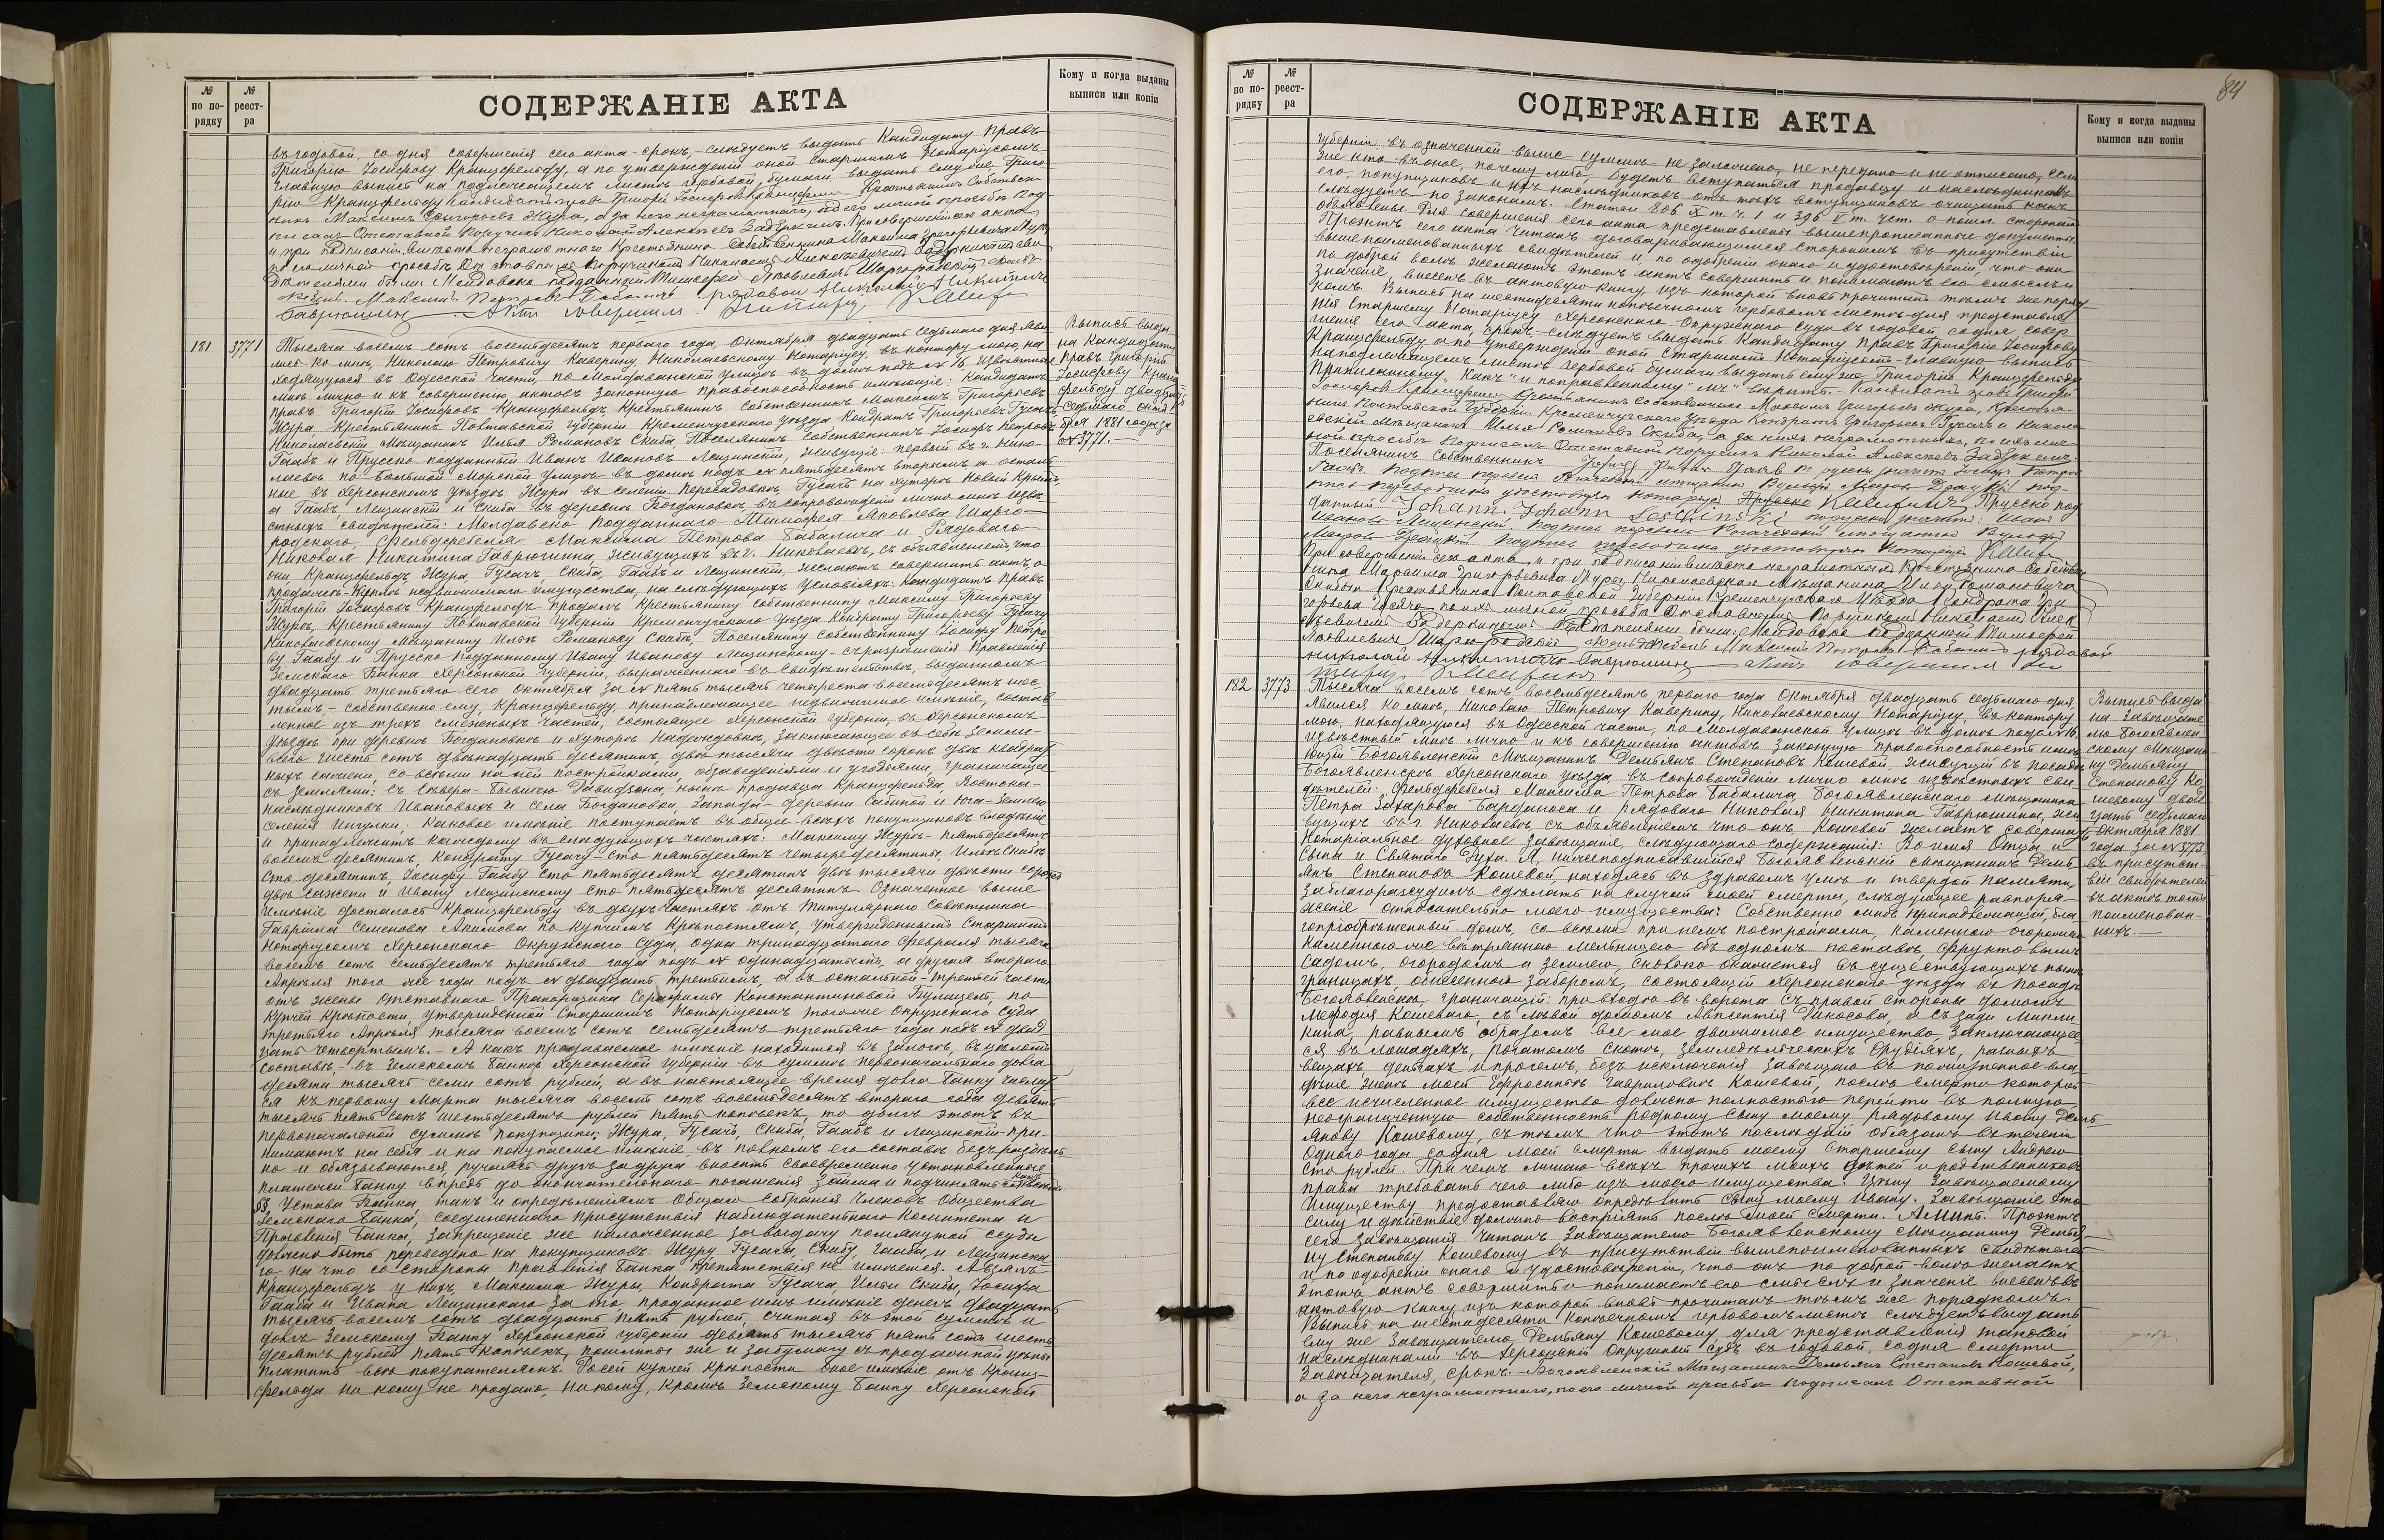 № по по-рядку
№ реест-ра
СОДЕРЖАНІЕ АКТА
Кому и когда выданы выписи или копіи
въ годовой, со дня совершенія сего акта - срокъ, - слѣдуетъ выдать Кандидату Правъ
Григорію Іосифову Кранцфельду, а по утвержденіи оной Старшимъ Нотаріусомъ
главную выпись на подлежащемъ листѣ гербовой бумаги выдать ему же, Григо
рію Кранцфельду Кандидатъ правъ Григорій Іосифовъ Кранцфельдъ Крестьянинъ Собствен
никъ Максимъ Григорьевъ Жура, а за него неграмотнаго, по его личной просьбѣ под
писалъ Отставной Поручикъ Николай Алексѣевъ При совершеніи сего акта
и при подписаніи вмѣсто неграмотнаго Крестьянина Собственника Максима Григорьевича Журы
по личной просьбѣ Отставнымъ Поручикомъ Николаемъ Алексѣевичемъ сви
дѣтелями были: Молдавско подданный Тимофей Яковлевичъ Шаргородскій
Максимъ Петровъ Бабаличъ рядовой Николай Никитичъ
Гаврюшинъ. Актъ совершилъ Нотаріусъ
181
3771
Тысяча восемь сотъ восемьдесятъ перваго года, Октября двадцать седьмого дня, яви
лись ко мнѣ, Николаю Петровичу Каверину, Николаевскому Нотаріусу, въ контору мою, на
ходящуюся въ Одесской части, по Молдаванской улицѣ въ домѣ подъ № 16, извѣстные
мнѣ лично и къ совершенію актовъ законную правоспособность имѣющіе: Кандидатъ
правъ Григорій Іосифовъ Кранцфельдъ, Крестьянинъ Собственникъ Максимъ Григорьевъ
Жура, Крестьянинъ Полтавской Губерніи Кременчугскаго уѣзда Кондратъ Григорьевъ Гусачъ,
Николаевскій мѣщанинъ Илья Романовъ Скиба, Поселянинъ Собственникъ Іосифъ Петровъ
Гаабъ и Прусско подданный Иванъ Ивановъ Лещинскій, живущіе: первый въ г. Нико-
лаевѣ по Большой Морской улицѣ въ домѣ подъ № пятьдесятъ вторымъ, а осталь
ные въ Херсонскомъ уѣздѣ: Жура въ селеніи Пересадовкѣ, Гусачъ на хуторѣ Новый Крымъ,
а Гаабъ, Лещинскій и Скиба въ деревнѣ Богдановкѣ, въ сопровожденіи лично мнѣ извѣ
стныхъ свидѣтелей: Молдавско подданнаго Тимофея Яковлева Шарго-
родскаго, фельдфебеля Максима Петрова Бабалича и Рядоваго
Николая Никитина Гаврюшина, живущихъ въ г. Николаевѣ, съ объявленіемъ, что
они, Кранцфельдъ, Жура, Гусачъ, Скиба, Гаабъ и Лещинскій, желаютъ совершить актъ о
продажѣ-куплѣ недвижимаго имущества, на слѣдующихъ условіяхъ: Кандидатъ правъ
Григорій Іосифовъ Кранцфельдъ продалъ Крестьянину собственнику Максиму Григорьеву
Журѣ, Крестьянину Полтавской Губерніи Кременчугскаго уѣзда Кондрату Григорьеву Гусачу,
Николаевскому мѣщанину Ильѣ Романову Скибѣ, Поселянину собственнику Іосифу Петро
ву Гаабу и Прусско подданному Ивану Иванову Лещинскому - съ разрѣшенія Правленія
Земскаго Банка Херсонской Губерніи, выраженнаго въ свидѣтельствѣ, выданномъ
двадцать третьяго сего Октября за № пять тысячъ четыреста восемьдесятъ шес
тымъ, - собственно ему, Кранцфельду, принадлежащее недвижимое имѣніе, состав
ленное изъ трехъ смежныхъ частей, состоящее Херсонской Губерніи, въ Херсонскомъ
уѣздѣ при деревнѣ Богдановкѣ и хуторѣ Надеждовкѣ, заключающее въ себѣ земли
всего шесть сотъ двѣнадцать десятинъ, двѣ тысячи двѣсти сорокъ двѣ квадрат
ныхъ сажени, со всѣми на ней постройками, обзаведеніями и угодьями, граничащее
съ землями: съ Сѣвера - бывшею Давидсона, нынѣ продавца Кранцфельда, Востока -
наслѣдниковъ Ивановыхъ и села Богдановки, Запада - деревни Сапной и Юга - землею
селенія Ингулки; каковое имѣніе поступаетъ въ общее всѣхъ покупщиковъ владѣніе
и принадлежитъ каждому въ слѣдующихъ частяхъ: Максиму Журѣ - пятьдесятъ
восемь десятинъ, Кондрату Гусачу - сто пятьдесятъ четыре десятины, Ильѣ Скибѣ
сто десятинъ, Іосифу Гаабу сто пятьдесятъ десятинъ двѣ тысячи двѣсти сорокъ
двѣ сажени и Ивану Лещинскому сто пятьдесятъ десятинъ. Означенное выше
имѣніе досталось Кранцфельду въ двухъ частяхъ отъ Титулярнаго Совѣтника
Гавріила Семенова Акимова по купчимъ крѣпостямъ, утвержденнымъ Старшимъ
Нотаріусомъ Херсонскаго Окружнаго Суда, одна тринадцатаго Февраля тысяча
восемь сотъ семьдесятъ третьяго года подъ № одинадцатымъ, а другая втораго
Апрѣля того же года подъ № двадцать третьимъ, а въ остальной - третьей части
отъ жены отставнаго Прапорщика Серафимы Константиновой Булацель, по
купчей крѣпости, утвержденной Старшимъ Нотаріусомъ того же Окружнаго Суда
третьяго Апрѣля тысяча восемь сотъ семьдесятъ третьяго года подъ № двад
цать четвертымъ. - А какъ продаваемое имѣніе находится въ залогѣ, въ цѣломъ
составѣ, - въ Земскомъ Банкѣ Херсонской Губерніи въ суммѣ первоначальнаго долга
десяти тысячъ семи сотъ рублей, а въ настоящее время долга Банку числит
ся къ первому Марта тысяча восемь сотъ восемьдесятъ втораго года девять
тысячъ пять сотъ шестьдесятъ рублей пять копѣекъ, то долгъ этотъ въ
первоначальной суммѣ покупщики: Жура, Гусачъ, Скиба, Гаабъ и Лещинскій - при-
нимаютъ на себя и на покупаемое имѣніе, въ полномъ его составѣ безъ раздѣль
но и обязываются, ручаясь другъ за друга вносить своевременно установленные
платежи Банку впредь до окончательнаго погашенія займа и подчиняться какъ
§§ Устава Банка, такъ и опредѣленіямъ Общаго Собранія Членовъ Общества
Земскаго Банка, соединеннаго присутствія наблюдательнаго Комитета и
Правленія Банка, запрещеніе же наложенное за выдачу помянутой ссуды
должно быть переведено на покупщиковъ: Журу, Гусача, Скибу, Гааба, и Лещинска
го на что со стороны Правленія Банка препятствія не имѣется. А взялъ
Кранцфельдъ у нихъ, Максима Журы, Кондрата Гусача, Ильи Скибы, Іосифа
Гааба и Ивана Лещинскаго за то, проданное имъ имѣніе денегъ двадцать
тысячъ восемь сотъ двадцать пять рублей, считая въ этой суммѣ и
долгъ Земскому Банку Херсонской губерніи девять тысячъ пять сотъ шесть
десятъ рублей пять копѣекъ, пошлины же и за бумагу съ продажной цѣны
платить всѣ покупателямъ. До сей купчей крѣпости оное имѣніе отъ Кранц-
фельда ни кому не продано, ни кому, кромѣ Земскому Банку Херсонской
Выпись выда-
на Кандидату
Правъ Григорію
Іосифову Кранц
фельду двадцать
седьмаго Октя
бря 1881 года за
№ 3771. -
84
№ по по-рядку
№ реест-ра
СОДЕРЖАНІЕ АКТА
Кому и когда выданы выписи или копіи
губерніи, въ означенной выше суммѣ не заложено, не передано и не отписано, если
же кто въ оное, почему либо, будетъ вступаться продавцу и наслѣдникамъ
его, покупщиковъ и ихъ наслѣдниковъ отъ тѣхъ вступщиковъ очищать какъ
слѣдуетъ по законамъ. Статьи 806 X т. ч. 1 и 396 V т. уст. о пошл. сторонамъ
объявлены. Для совершенія сего акта представлены вышепрописанные документы.
Проэктъ сего акта читанъ договаривающимся сторонамъ въ присутствіи
вышепоименованныхъ свидѣтелей и, по одобреніи онаго и удостовѣреніи, что они
по доброй волѣ желаютъ этотъ актъ совершить и понимаютъ его смыслъ и
значеніе, внесенъ въ актовую книгу, изъ которой вновь прочитанъ тѣмъ же поряд
комъ. Выпись на шестидесяти копѣечномъ гербовомъ листѣ для представле
нія Старшему Нотаріусу Херсонскаго Окружнаго Суда въ годовой, со дня совер
шенія сего акта, срокъ - слѣдуетъ выдать Кандидату Правъ Григорію Іосифову
Кранцфельду а по утвержденіи оной Старшимъ Нотаріусомъ - главную выпись
на подлежащемъ листѣ гербовой бумаги выдать ему же Григорію Кранцфельду.
Приписанному "какъ" и поправленному "мъ" вѣрить. Кандидатъ правъ Григорій
Іосифовъ Кранцфельдъ Крестьянинъ Собственникъ Максимъ Григорьевъ Жура, Крестья-
нинъ Полтавской Губерніи Кременчугскаго Уѣзда Кондратъ Григорьевъ Гусачъ и Никола
евскій мѣщанинъ Илья Романовъ Скиба, а за нихъ неграмотныхъ, по ихъ лич-
ной просьбѣ подписалъ Отставной Поручикъ Николай Алексѣевъ
Поселянинъ Собственникъ по русски значитъ Іосифъ Петровъ
Гаабъ подпись перевелъ мѣщанинъ Вульфъ под-
пись переводчика удостовѣряю Нотаріусъ Прусско под
данный Johann Leschinski по русски значитъ: Иванъ
Ивановъ Лещинскій. Подпись перевелъ мѣщанинъ Вульфъ
подпись переводчика удостовѣряю Нотаріусъ
При совершеніи сего акта и при подписаніи вмѣсто неграмотныхъ Крестьянина Собствен
ника Максима Григорьевича Журы, Николаевскаго мѣщанина Ильи Романовича
Скибы и Крестьянина Полтавской Губерніи Кременчугскаго Уѣзда Кондрата Гри
горьева Гусача по ихъ личной просьбѣ Отставнымъ Поручикомъ Николаемъ Алек
сѣевичемъ свидѣтелями были: Молдавско подданный Тимофей
Яковлевичъ Шаргородскій фельдфебель Максимъ Петровъ Бабаличъ рядовой
Николай Никитичъ Гаврюшинъ Актъ совершилъ
182
3773
Тысяча восемь сотъ восемьдесятъ перваго года Октября двадцать седьмаго дня,
явился ко мнѣ, Николаю Петровичу Каверину, Николаевскому Нотаріусу, въ контору
мою, находящуюся въ Одесской части, по Молдаванской улицѣ въ домѣ подъ № 16,
извѣстный мнѣ лично и къ совершенію актовъ законную правоспособность имѣ
ющій Богоявленскій мѣщанинъ Демьянъ Степановъ Кошевой, живущій въ посадѣ
Богоявленскѣ Херсонскаго уѣзда въ сопровожденіи лично мнѣ извѣстныхъ сви-
дѣтелей: Фельдфебеля Максима Петрова Бабалича, Богоявленскаго мѣщанина
Петра Захарова Барданоса и рядоваго Николая Никитина Гаврюшина, жи
вущихъ въ г. Николаевѣ, съ объявленіемъ что онъ, Кошевой желаетъ совершить
Нотаріальное духовное завѣщаніе, слѣдующаго содержанія: Во имя Отца и
Сына и Святаго Духа. Я, нижеподписавшійся Богоявленскій мѣщанинъ Демь
янъ Степановъ Кошевой, находясь въ здравомъ умѣ и твердой памяти,
заблагоразсудилъ сдѣлать на случай моей смерти, слѣдующее распоря-
женіе относительно моего имущества: Собственно мнѣ принадлежащій, бла
гопріобрѣтенный домъ, со всѣми при немъ постройками, каменною огорожею
каменною же вѣтрянною мельницею объ одномъ поставѣ, фруктовымъ
садомъ, огородомъ и землею, сколько окажется въ существующихъ нынѣ
границахъ, обнесенной заборомъ, состоящій Херсонскаго уѣзда въ посадѣ
Богоявленскѣ, граничащій: при входѣ въ ворота съ правой стороны домомъ
Мефодія Кошеваго, съ лѣвой домомъ Авксентія Дикосова, а сзади Микли
кина, равнымъ образомъ все мое движимое имущество, заключающее
ся въ лошадяхъ, рогатомъ скотѣ, земледѣльческихъ орудіяхъ, разныхъ
вещахъ, деньгахъ и прочемъ, безъ исключенія завѣщаю въ пожизненное вла
дѣніе женѣ моей Ефросиньѣ Гавриловнѣ Кошевой, послѣ смерти которой
все исчисленное имущество должно полностью перейти въ полную
неограниченную собственность родному сыну моему рядовому Ивану Демь
янову Кошевому, съ тѣмъ что этотъ послѣдній обязанъ въ теченіи
одного года со дня моей смерти выдать моему старшему сыну Андрею
сто рублей. При чемъ лишаю всѣхъ прочихъ моихъ дѣтей и родственниковъ
права требовать чего либо изъ моего имущества. Цѣну завѣщаемому
имуществу предоставляю опредѣлить сыну моему Ивану. Завѣщаніе это
силу и дѣйствіе должно воспріять послѣ моей смерти. Аминь. Проэктъ
сего завѣщанія читанъ завѣщателю Богоявленскому мѣщанину Демья-
ну Степанову Кошевому въ присутствіи вышепоименованныхъ свидѣтелей
и по одобреніи онаго и удостовѣреніи, что онъ по доброй волѣ желаетъ
этотъ актъ совершить и понимаетъ его смыслъ и значеніе внесенъ въ
актовую книгу изъ которой вновь прочитанъ тѣмъ же порядкомъ.
Выпись на шестидесяти копѣечномъ гербовомъ листѣ слѣдуетъ выдать
ему же завѣщателю Демьяну Кошевому, для представленія таковой
наслѣдниками въ Херсонскій Окружный Судъ въ годовой, со дня смерти
завѣщателя, срокъ. - Богоявленскій Мѣщанинъ Демьянъ Степановъ Кошевой,
а за него неграмотнаго, по его личной просьбѣ подписалъ Отставной
Выпись выда
на завѣщате
лю Богоявлен-
скому мѣщани-
ну Демьяну
Степанову Ко
шевому двад
цать седьмаго
Октября 1881
года за № 3773
въ присутст-
віи свидѣтелей
въ актѣ томъ
поименован-
ныхъ. -